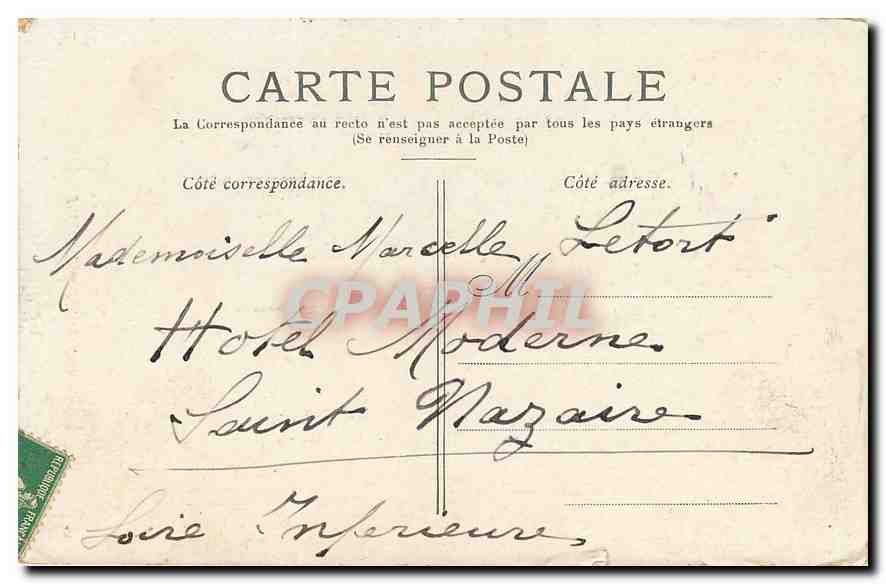 CARTE POSTALE
La Correspondance au recto n'est pas acceptée par tous les pays étrangers
(Se renseigner à la Poste)
Côté correspondance.
Côté adresse.
Mademoiselle Marcelle Letort
M
CPAPHIL
Hotel Moderne
Saint Nazaire
Loire Inferieure
REPUBLIQUE
FRANÇAI